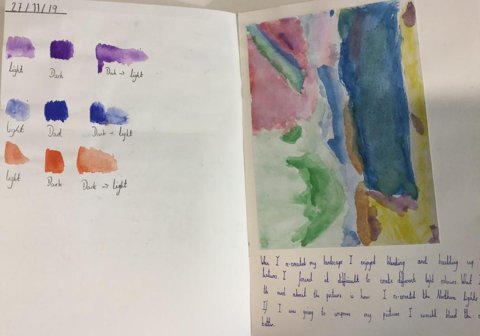 27/11/19
Light Dark Dark → light
Light Dark Dark → light
Light Dark Dark → light
When I re-created my landscape I enjoyed blending and building up
texture. I found it difficult to create different light colours. What I
the most about the picture is how I re-created the Northern lights
If I was going to improve my picture I would blend the
better.